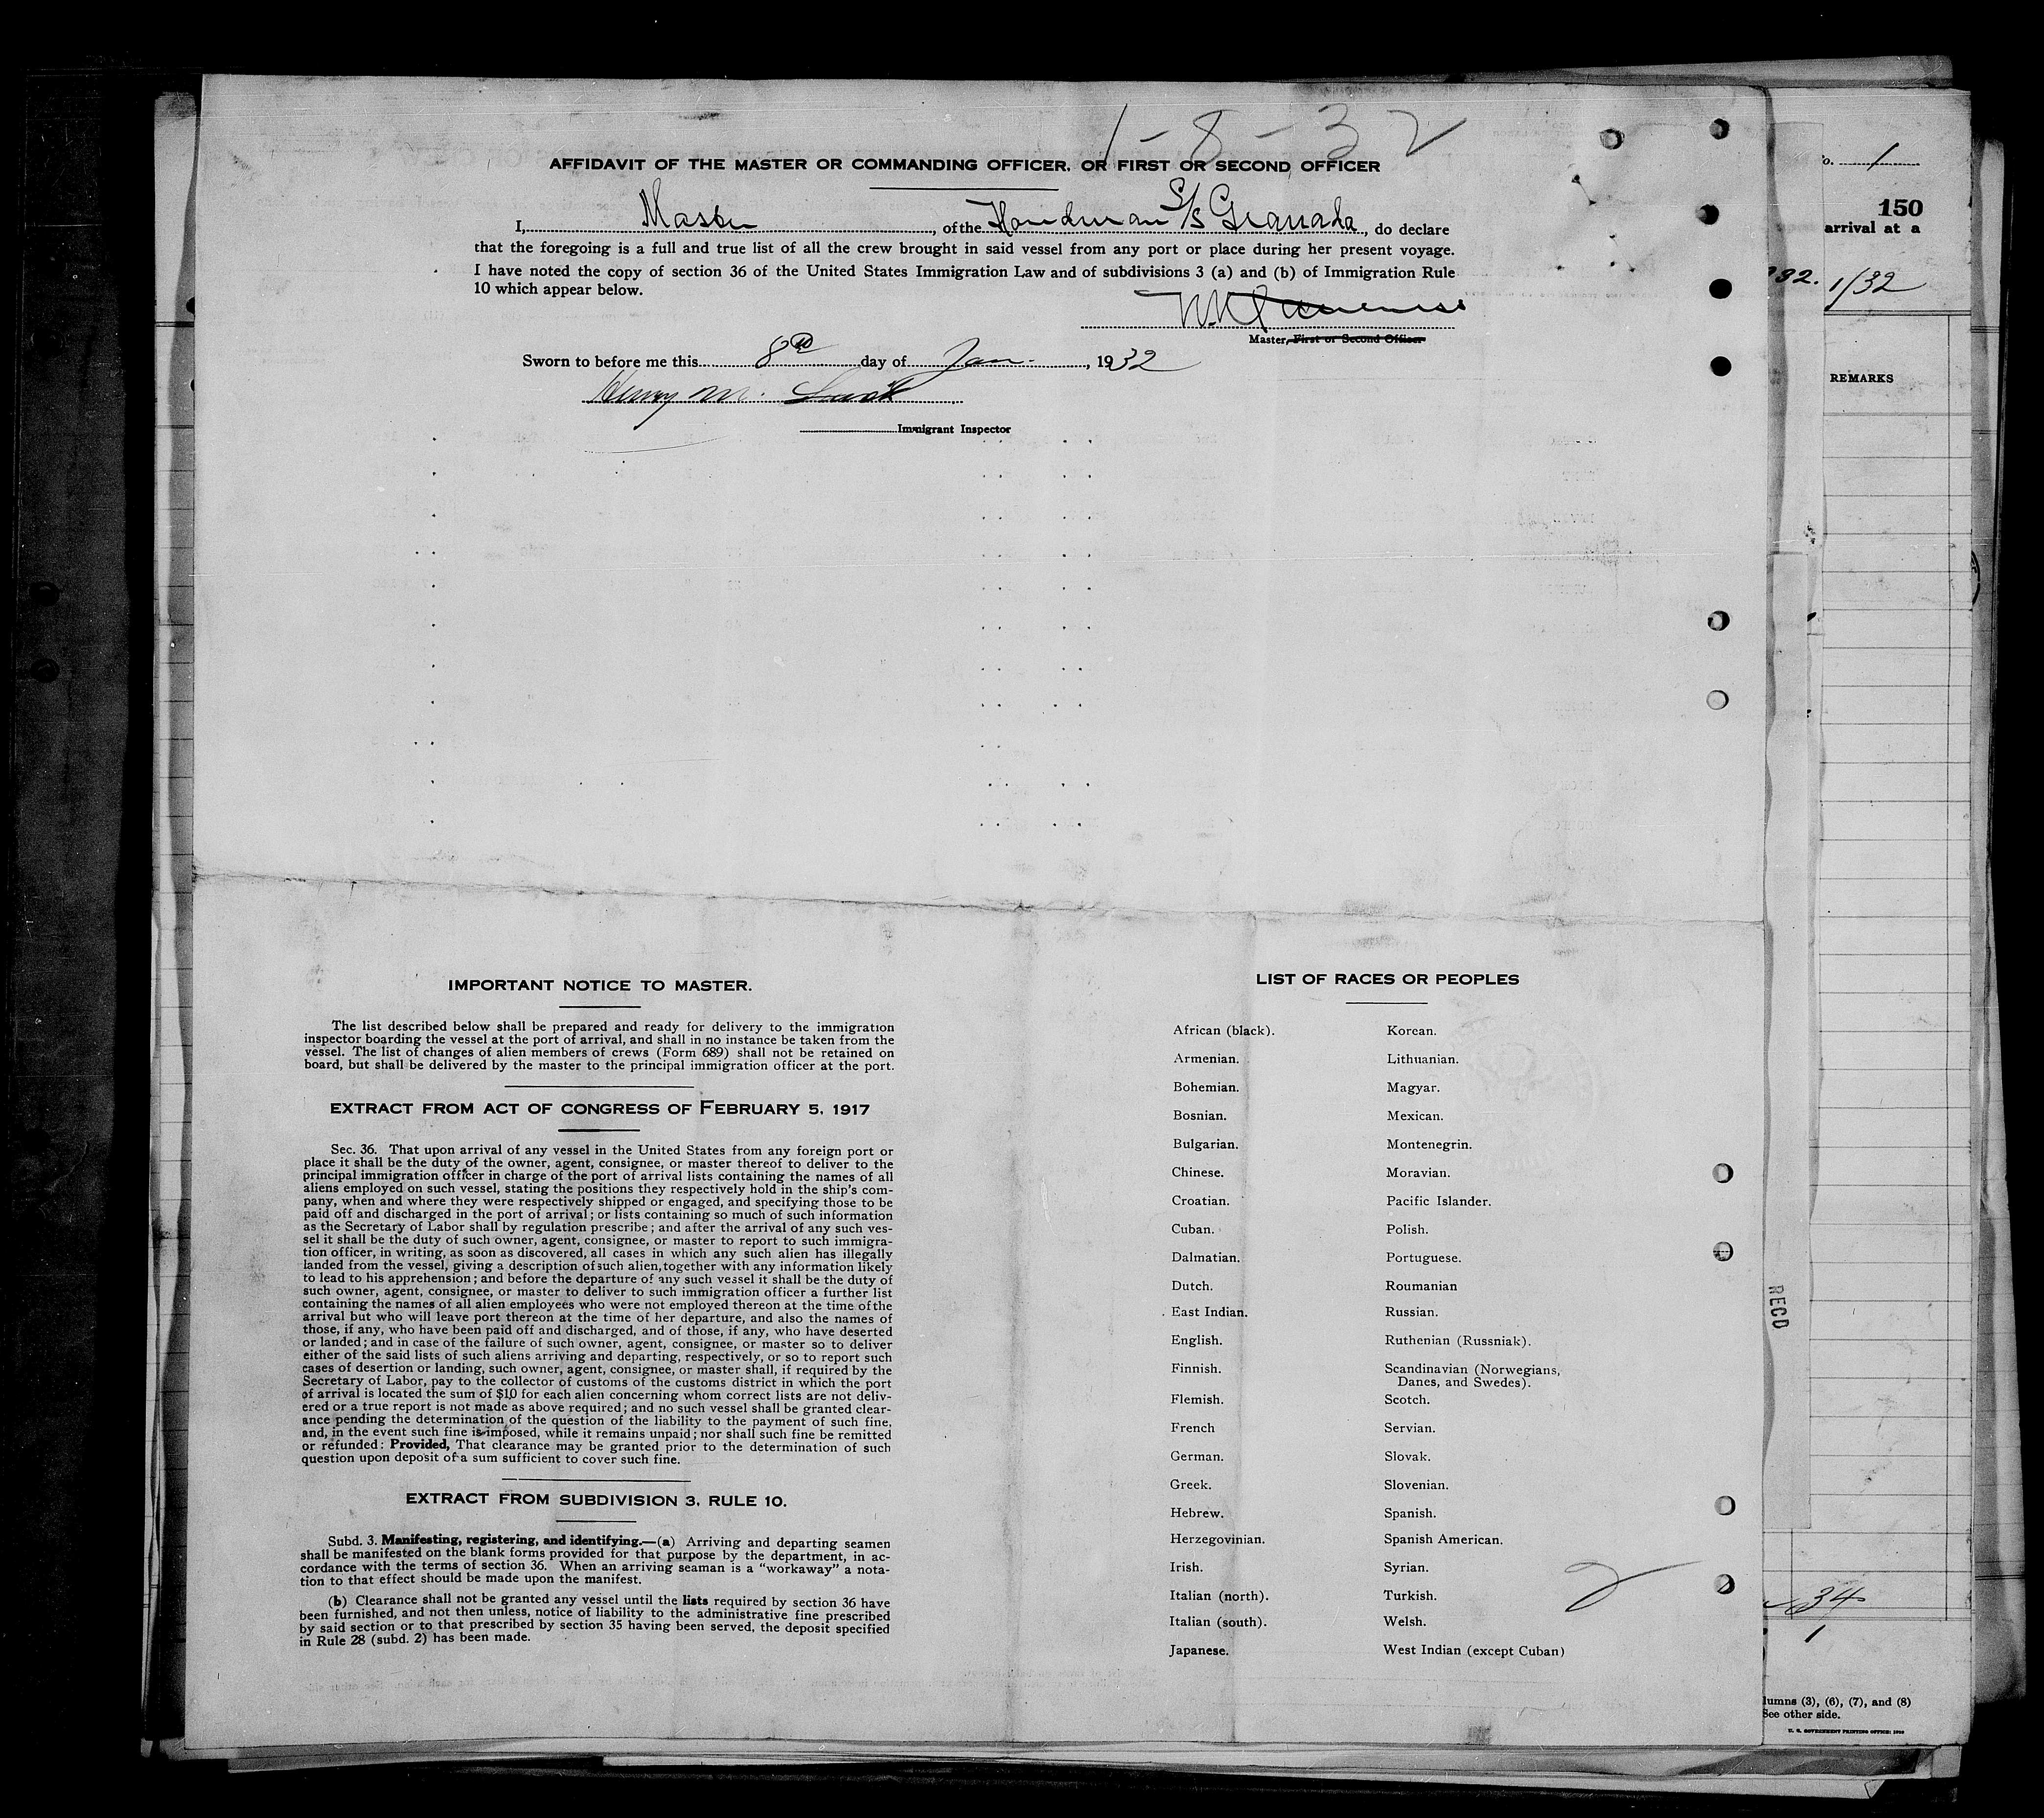 1-8-32
AFFIDAVIT OF THE MASTER OR COMMANDING OFFICER, OR FIRST OR SECOND OFFICER
I, Master, of the Honduran S/S Granada, do declare
that the foregoing is a full and true list of all the crew brought in said vessel from any port or place during her present voyage.
I have noted the copy of section 36 of the United States Immigration Law and of subdivisions 3 (a) and (b) of Immigration Rule
10 which appear below.
Master, First or Second Officer
Sworn to before me this 8th day of Jan., 1932
Henry M.
Immigrant Inspector
IMPORTANT NOTICE TO MASTER.
The list described below shall be prepared and ready for delivery to the immigration
inspector boarding the vessel at the port of arrival, and shall in no instance be taken from the
vessel. The list of changes of alien members of crews (Form 689) shall not be retained on
board, but shall be delivered by the master to the principal immigration officer at the port.
EXTRACT FROM ACT OF CONGRESS OF FEBRUARY 5, 1917
Sec. 36. That upon arrival of any vessel in the United States from any foreign port or
place it shall be the duty of the owner, agent, consignee, or master thereof to deliver to the
principal immigration officer in charge of the port of arrival lists containing the names of all
aliens employed on such vessel, stating the positions they respectively hold in the ship's com-
pany, when and where they were respectively shipped or engaged, and specifying those to be
paid off and discharged in the port of arrival; or lists containing so much of such information
as the Secretary of Labor shall by regulation prescribe; and after the arrival of any such ves-
sel it shall be the duty of such owner, agent, consignee, or master to report to such immigra-
tion officer, in writing, as soon as discovered, all cases in which any such alien has illegally
landed from the vessel, giving a description of such alien, together with any information likely
to lead to his apprehension; and before the departure of any such vessel it shall be the duty of
such owner, agent, consignee, or master to deliver to such immigration officer a further list
containing the names of all alien employees who were not employed thereon at the time of the
arrival but who will leave port thereon at the time of her departure, and also the names of
those, if any, who have been paid off and discharged, and of those, if any, who have deserted
or landed; and in case of the failure of such owner, agent, consignee, or master so to deliver
either of the said lists of such aliens arriving and departing, respectively, or so to report such
cases of desertion or landing, such owner, agent, consignee, or master shall, if required by the
Secretary of Labor, pay to the collector of customs of the customs district in which the port
of arrival is located the sum of $10 for each alien concerning whom correct lists are not deliv-
ered or a true report is not made as above required; and no such vessel shall be granted clear-
ance pending the determination of the question of the liability to the payment of such fine,
and, in the event such fine is imposed, while it remains unpaid; nor shall such fine be remitted
or refunded: Provided, That clearance may be granted prior to the determination of such
question upon deposit of a sum sufficient to cover such fine.
EXTRACT FROM SUBDIVISION 3, RULE 10.
Subd. 3. Manifesting, registering, and identifying.—(a) Arriving and departing seamen
shall be manifested on the blank forms provided for that purpose by the department, in ac-
cordance with the terms of section 36. When an arriving seaman is a "workaway" a nota-
tion to that effect should be made upon the manifest.
(b) Clearance shall not be granted any vessel until the lists required by section 36 have
been furnished, and not then unless, notice of liability to the administrative fine prescribed
by said section or to that prescribed by section 35 having been served, the deposit specified
in Rule 28 (subd. 2) has been made.
LIST OF RACES OR PEOPLES
African (black).
Armenian.
Bohemian.
Bosnian.
Bulgarian.
Chinese.
Croatian.
Cuban.
Dalmatian.
Dutch.
East Indian.
English.
Finnish.
Flemish.
French
German.
Greek.
Hebrew.
Herzegovinian.
Irish.
Italian (north).
Italian (south).
Japanese.
Korean.
Lithuanian.
Magyar.
Mexican.
Montenegrin.
Moravian.
Pacific Islander.
Polish.
Portuguese.
Roumanian
Russian.
Ruthenian (Russniak).
Scandinavian (Norwegians,
Danes, and Swedes).
Scotch.
Servian.
Slovak.
Slovenian.
Spanish.
Spanish American.
Syrian.
Turkish.
Welsh.
West Indian (except Cuban)
2
o. 1
150
arrival at a
32. 1/32
REMARKS
RECD
34
1
lumns (3), (6), (7), and (8)
See other side.
U. S. GOVERNMENT PRINTING OFFICE: